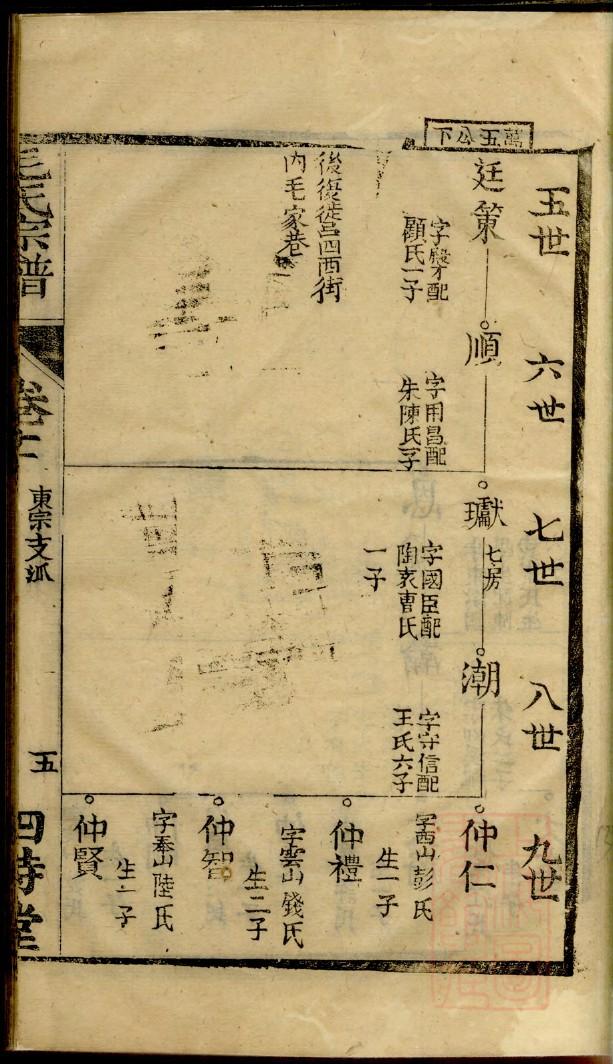 萬五公下
五世
六世
七世
八世
九世
廷策
字殿才配
顧氏一子
後復徙呂四西街
內毛家巷
順
字用昌配
朱陳氏子
瓛
七房
字國臣配
陶袁曹氏
一子
潮
字守信配
王氏六子
仲仁
字西山彭氏
生一子
仲禮
字雲山錢氏
生二子
仲智
字泰山陸氏
生一子
仲賢
毛氏宗譜
卷十
東宗支派
五
四持堂